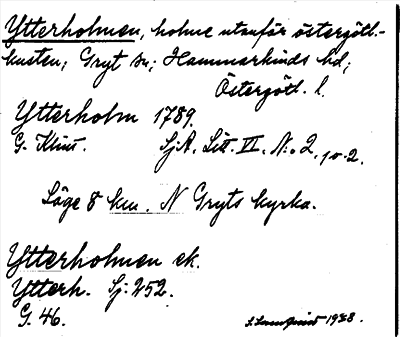 Ytterholmen, holme utanför östergötl.-
kusten; Gryt sn; Hammarkinds hd;
Östergötl. l.
Ytterholm 1789.
G. Klint. Sj.A. Litt. VI. No 2, 1 o. 2.
Läge 8 km. N Gryts kyrka.
Ytterholmen ek.
Ytterh. Sj: 252.
G. 46. 1938.